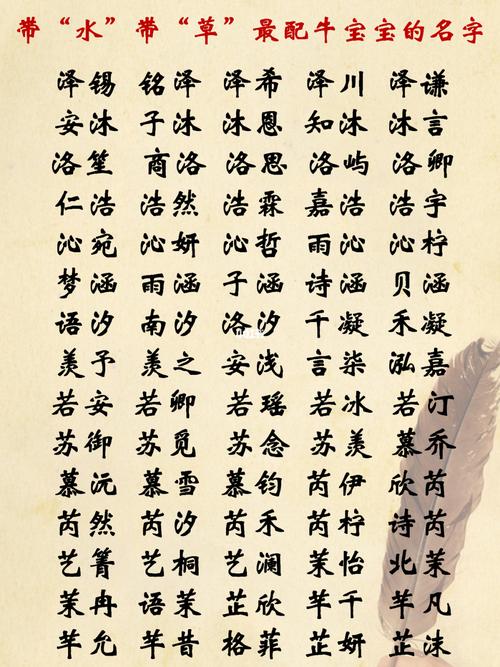 带“水”带“草”最配牛宝宝的名字
泽锡 铭泽 泽希 泽川 泽谦
安沐 子沐 沐恩 知沐 沐言
洛笙 商洛 洛思 洛屿 洛卿
仁浩 浩然 浩霖 嘉浩 浩宇
沁宛 沁妍 沁哲 雨沁 沁柠
梦涵 雨涵 子涵 诗涵 贝涵
语汐 南汐 洛汐 千凝 禾凝
羡予 羡之 安浅 言柒 泓嘉
若安 若卿 若瑶 若冰 若汀
苏御 苏觅 苏念 苏羡 慕乔
慕沅 慕雪 慕钧 芮伊 欣芮
芮然 芮汐 芮禾 芮柠 诗芮
艺箐 艺桐 艺澜 茉怡 北茉
茉冉 语茉 芷欣 芊千 芊凡
芊允 芊昔 格菲 芷妍 芷沫